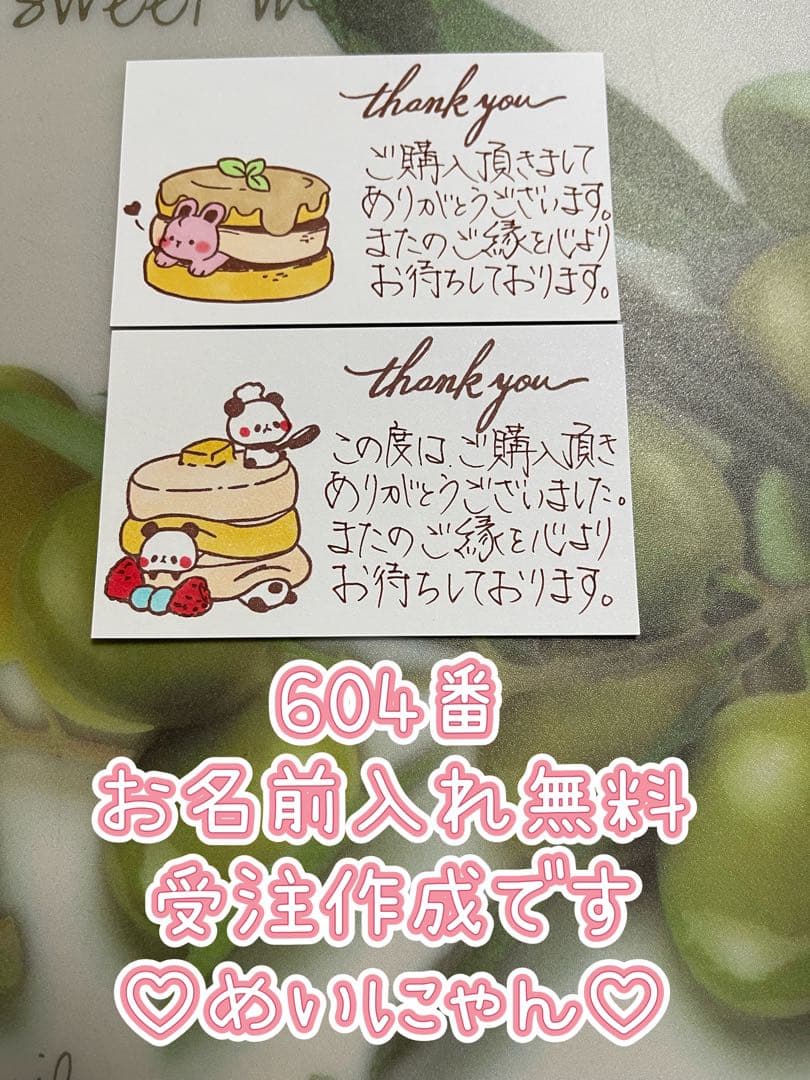 sweet
thank you
ご購入頂きまして
ありがとうございます。
またのご縁を心より
お待ちしております。
thank you
この度は、ご購入頂き
ありがとうございました。
またのご縁を心より
お待ちしております。
604番
お名前入れ無料
受注作成です
♡めいにゃん♡